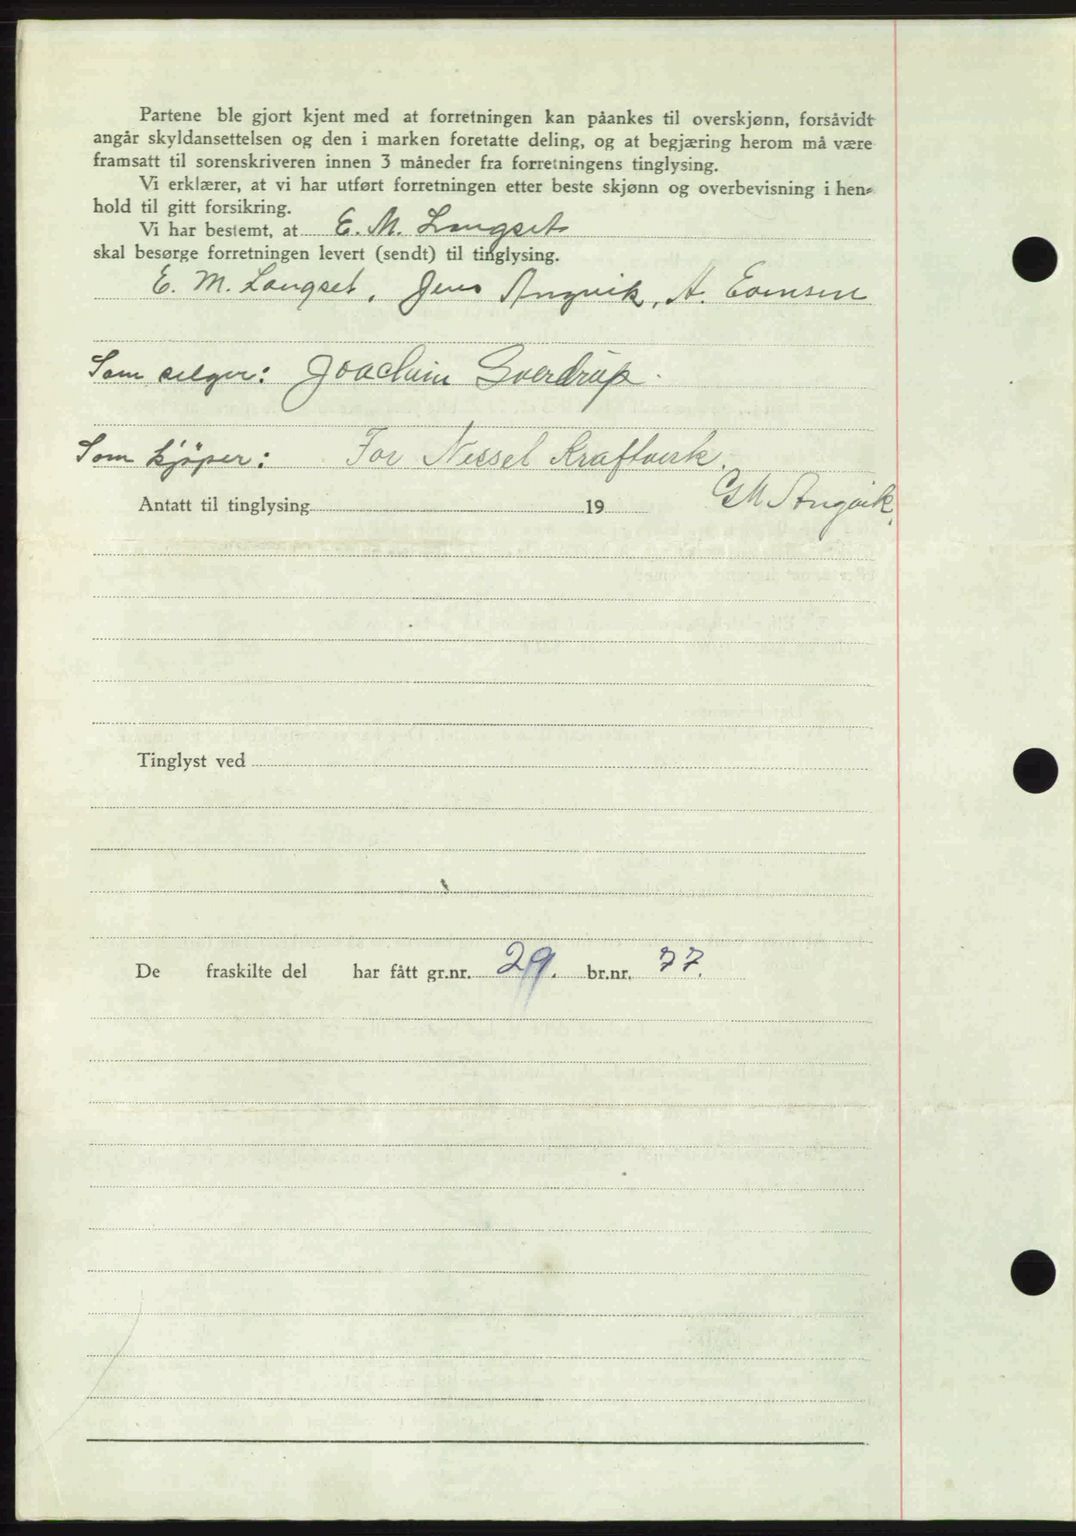 Partene ble gjort kjent med at forretningen kan påankes til overskjønn, forsåvidt
angår skyldansettelsen og den i marken foretatte deling, og at begjæring herom må være
framsatt til sorenskriveren innen 3 måneder fra forretningens tinglysing.
Vi erklærer, at vi har utført forretningen etter beste skjønn og overbevisning i hen-
hold til gitt forsikring.
Vi har bestemt, at E. M. Langset
skal besørge forretningen levert (sendt) til tinglysing.
E. M. Langset, Jens Angvik, A.
Som selger: Joachim Sverdrup.
Som kjøper: For Nesset Kraftverk.
Antatt til tinglysing 19 GM Angvik.
Tinglyst ved
De fraskilte del har fått gr.nr. 29. br.nr. 77.